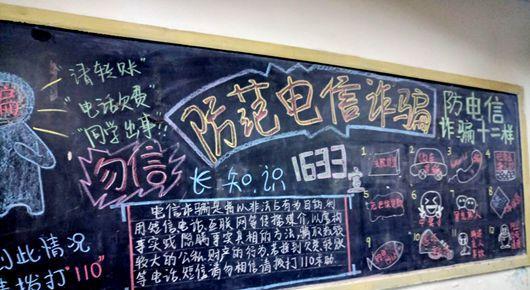 骗
"请转账"
"电话欠费"
"同学出事!!"
勿信
到此情况
请拨打"110"
防范电信诈骗
长知识
1633室
电信诈骗是指以非法占有为目的,利
用短信、电话、互联网等传播媒介,以虚构
事实或隐瞒事实真相的方法,骗取数额
较大的公私财产的行为,若接到欠费、转账
等电话、短信请勿相信,请拨打110求助
防电信
诈骗十二样
1
2
3
4
5
6
7
8
9
10
11
12